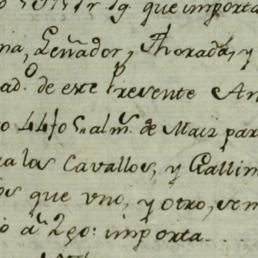 que importa
na, Leñador, y Thorada, y
ad.º de este Presente An
o 44fo s. alm.s de Maiz par
a los Cavallos, y Gallin
os que uno, y otro, sem
o á 290: importa